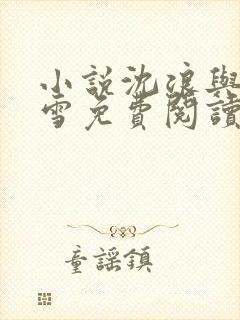 小說沈浪與
雪免費閱讀
童謠鎮